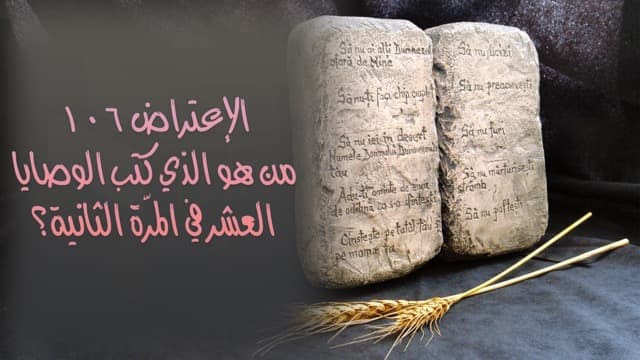 الإعتراض ١٠٦
من هو الذي كتب الوصايا
العشر في المرّة الثانية؟
Să nu ai alți Dumnezei
afară de Mine
Să nu-ți faci chip cioplit
Să nu iei în deșert
Numele Domnului Dumnezeului
tău
Adu-ți aminte de ziua
de odihnă ca s-o sfințești
Cinstește pe tatăl tău
pe mama ta
Să nu ucizi
Să nu preacurvești
Să nu furi
Să nu mărturisești
strâmb
Să nu poftești